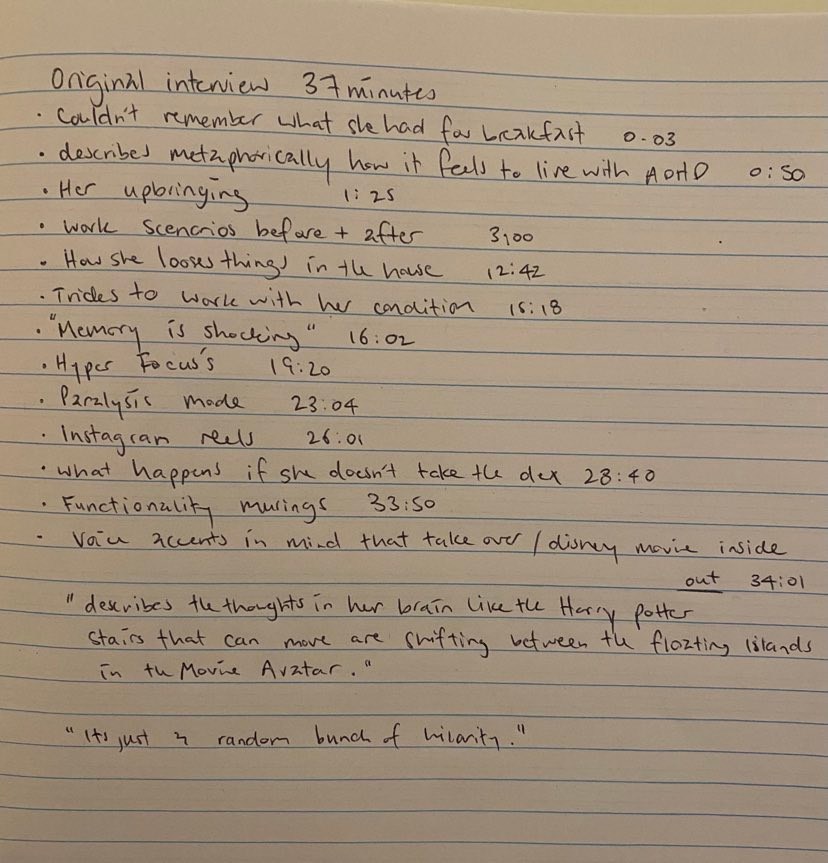 Original interview 37 minutes
· Couldn't remember what she had for breakfast 0.03
· describes metaphorically how it feels to live with ADHD 0:50
· Her upbringing 1:25
· work scenarios before + after 3:00
· How she looses things in the house 12:42
· Tricks to work with her condition 15:18
· "Memory is shocking" 16:02
· Hyper Focus's 19:20
· Paralysis mode 23:04
· Instagram reels 26:01
· what happens if she doesn't take the dex 28:40
· Functionality musings 33:50
· Voice accents in mind that take over / disney movie inside
out 34:01
" describes the thoughts in her brain like the Harry Potter
stairs that can move are shifting between the floating islands
in the Movie Avatar. "
" Its just a random bunch of hilarity. "